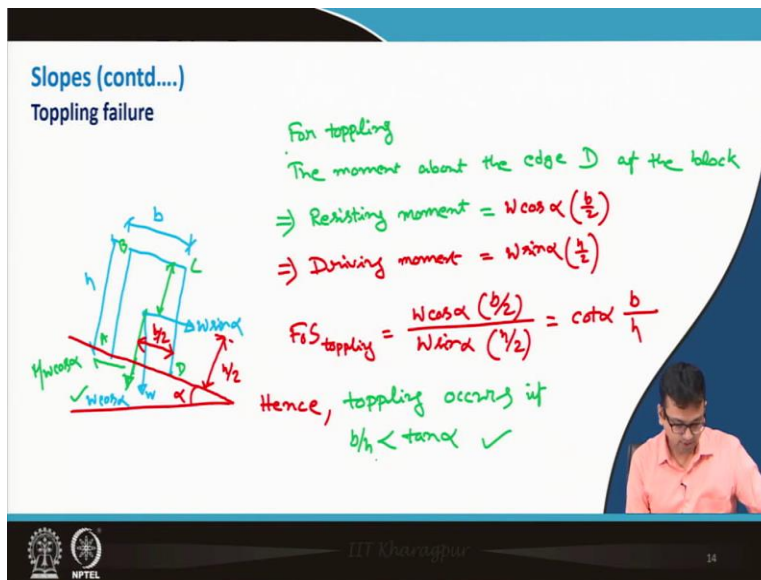 Slopes (contd....)
Toppling failure
For toppling
The moment about the edge D of the block
⇒ Resisting moment = W cos α (b/2)
⇒ Driving moment = W sin α (h/2)
FoS toppling = W cos α (b/2) / W sin α (h/2) = cot α b/h
Hence, toppling occurs if
b/h < tan α ✓
b
h
B
C
A
D
W sin α
b/2
h/2
μW cos α
W
✓ W cos α
α
IIT Kharagpur
NPTEL
14